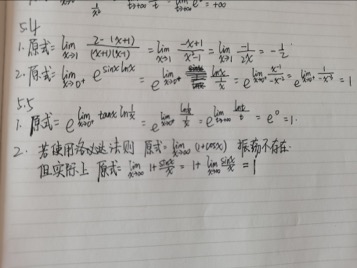 5.4
1. 原式=lim x→1 2-(x+1)/(x+1)(x-1) = lim x→1 -x+1/x²-1 = lim x→1 -1/2x = -1/2
2. 原式= lim x→0⁺ e^sinxlnx = e^lim x→0⁺ lnx/(1/x) = e^lim x→0⁺ x⁻¹/-x⁻² = e^lim x→0⁺ = 1
5.5
1. 原式= e^lim x→0⁺ tanx ln 1/x = e^lim = e^lim t→∞ lnt/t = e⁰ = 1.
2. 若使用洛必达法则 原式= lim x→∞ (1+cosx) 振荡不存在.
但实际上 原式= lim x→∞ 1+ sinx/x = 1+ lim x→∞ sinx/x = 1